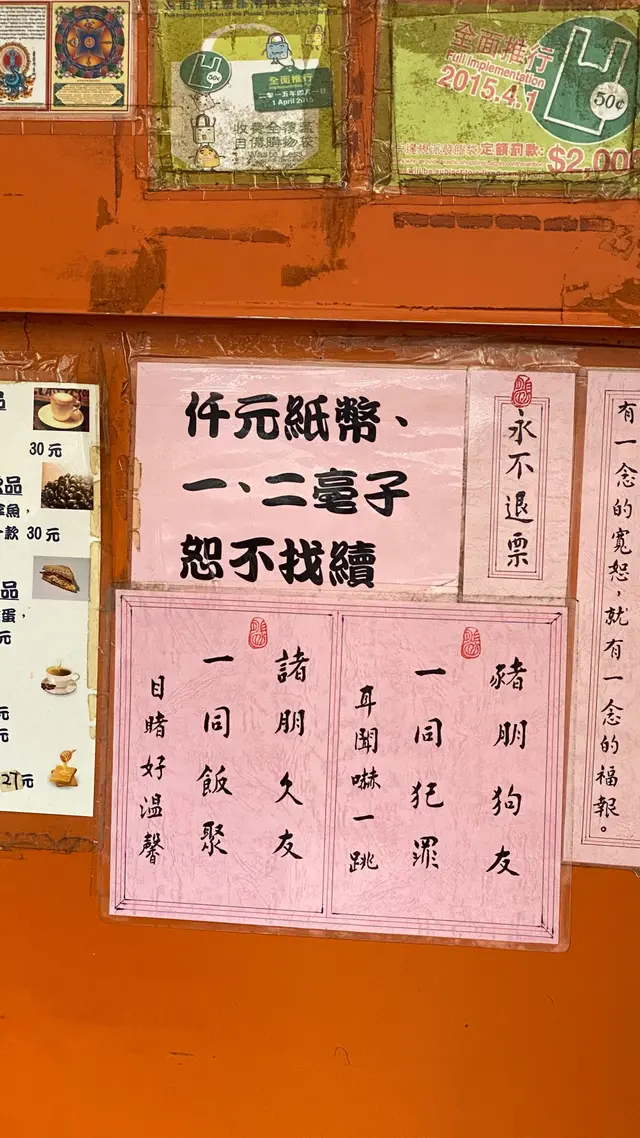 Full Implementation of the Plastic Shopping Bag Char
50¢
全面推行
二零一五年四月一日
1 April 2015
收費全覆蓋
自備購物袋
Waste Less
全面推行
Full Implementation
2015.4.1
50¢
定額罰款:
$2,000
品
30元
飲品
魚,
款 30元
品
蛋,
元
元
元
27元
仟元紙幣、
一、二毫子
恕不找續
永不退票
有一念的寬恕,就有一念的福報。
豬朋狗友
一同犯罪
耳聞嚇一跳
諸朋久友
一同飯聚
目睹好温馨